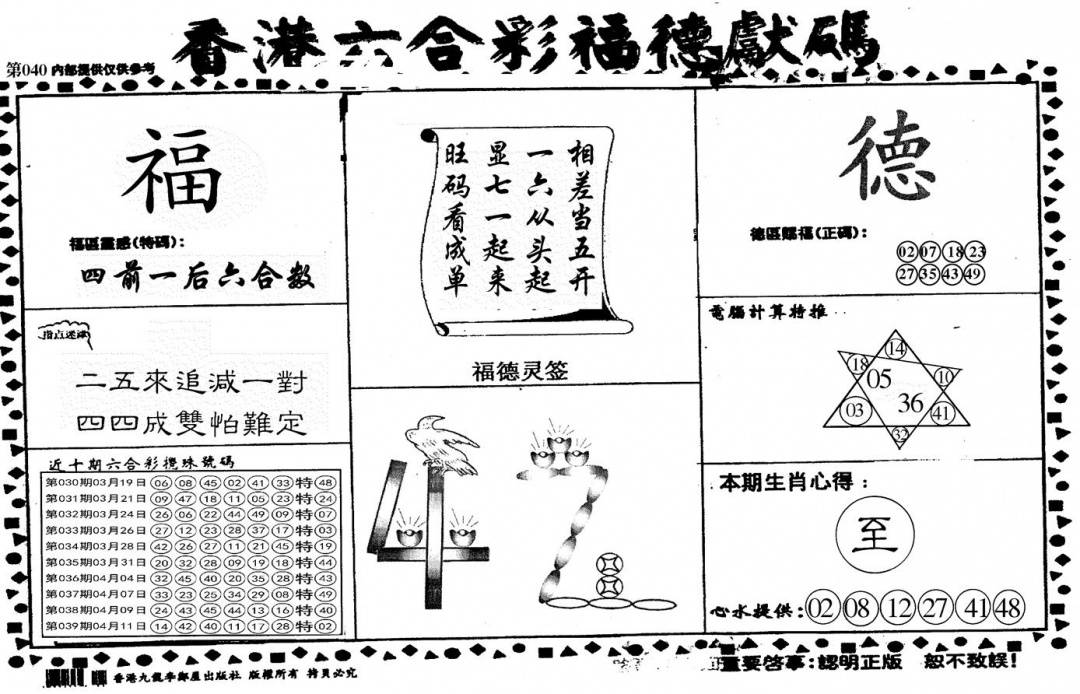 香港六合彩福德獻碼
第040 内部提供仅供参考
福
福區靈感(特碼):
四前一后六合数
指点迷津
二五來追減一對
四四成雙怕難定
近十期六合彩攪珠號碼
第030期03月19日 06 08 45 02 41 33 特 48
第031期03月21日 09 47 18 11 05 23 特 24
第032期03月24日 26 06 22 44 49 09 特 07
第033期03月26日 27 12 23 28 37 17 特 03
第034期03月28日 42 26 27 11 21 45 特 19
第035期03月31日 20 32 28 09 19 18 特 44
第036期04月04日 32 45 40 20 35 28 特 43
第037期04月07日 33 23 25 34 29 08 特 49
第038期04月09日 24 43 45 44 13 16 特 40
第039期04月11日 14 42 40 11 17 28 特 02
相差当五开
一六从头起
显七一起来
旺码看成单
福德灵签
德
德區賜福(正碼):
02 07 18 23
27 35 43 49
電腦計算特推
14
18 05 10
03 36 41
32
本期生肖心得:
至
心水提供: 02 08 12 27 41 48
香港九龍李鄭屋出版社 版權所有 拷貝必究
重要啓事:認明正版 恕不致誤!